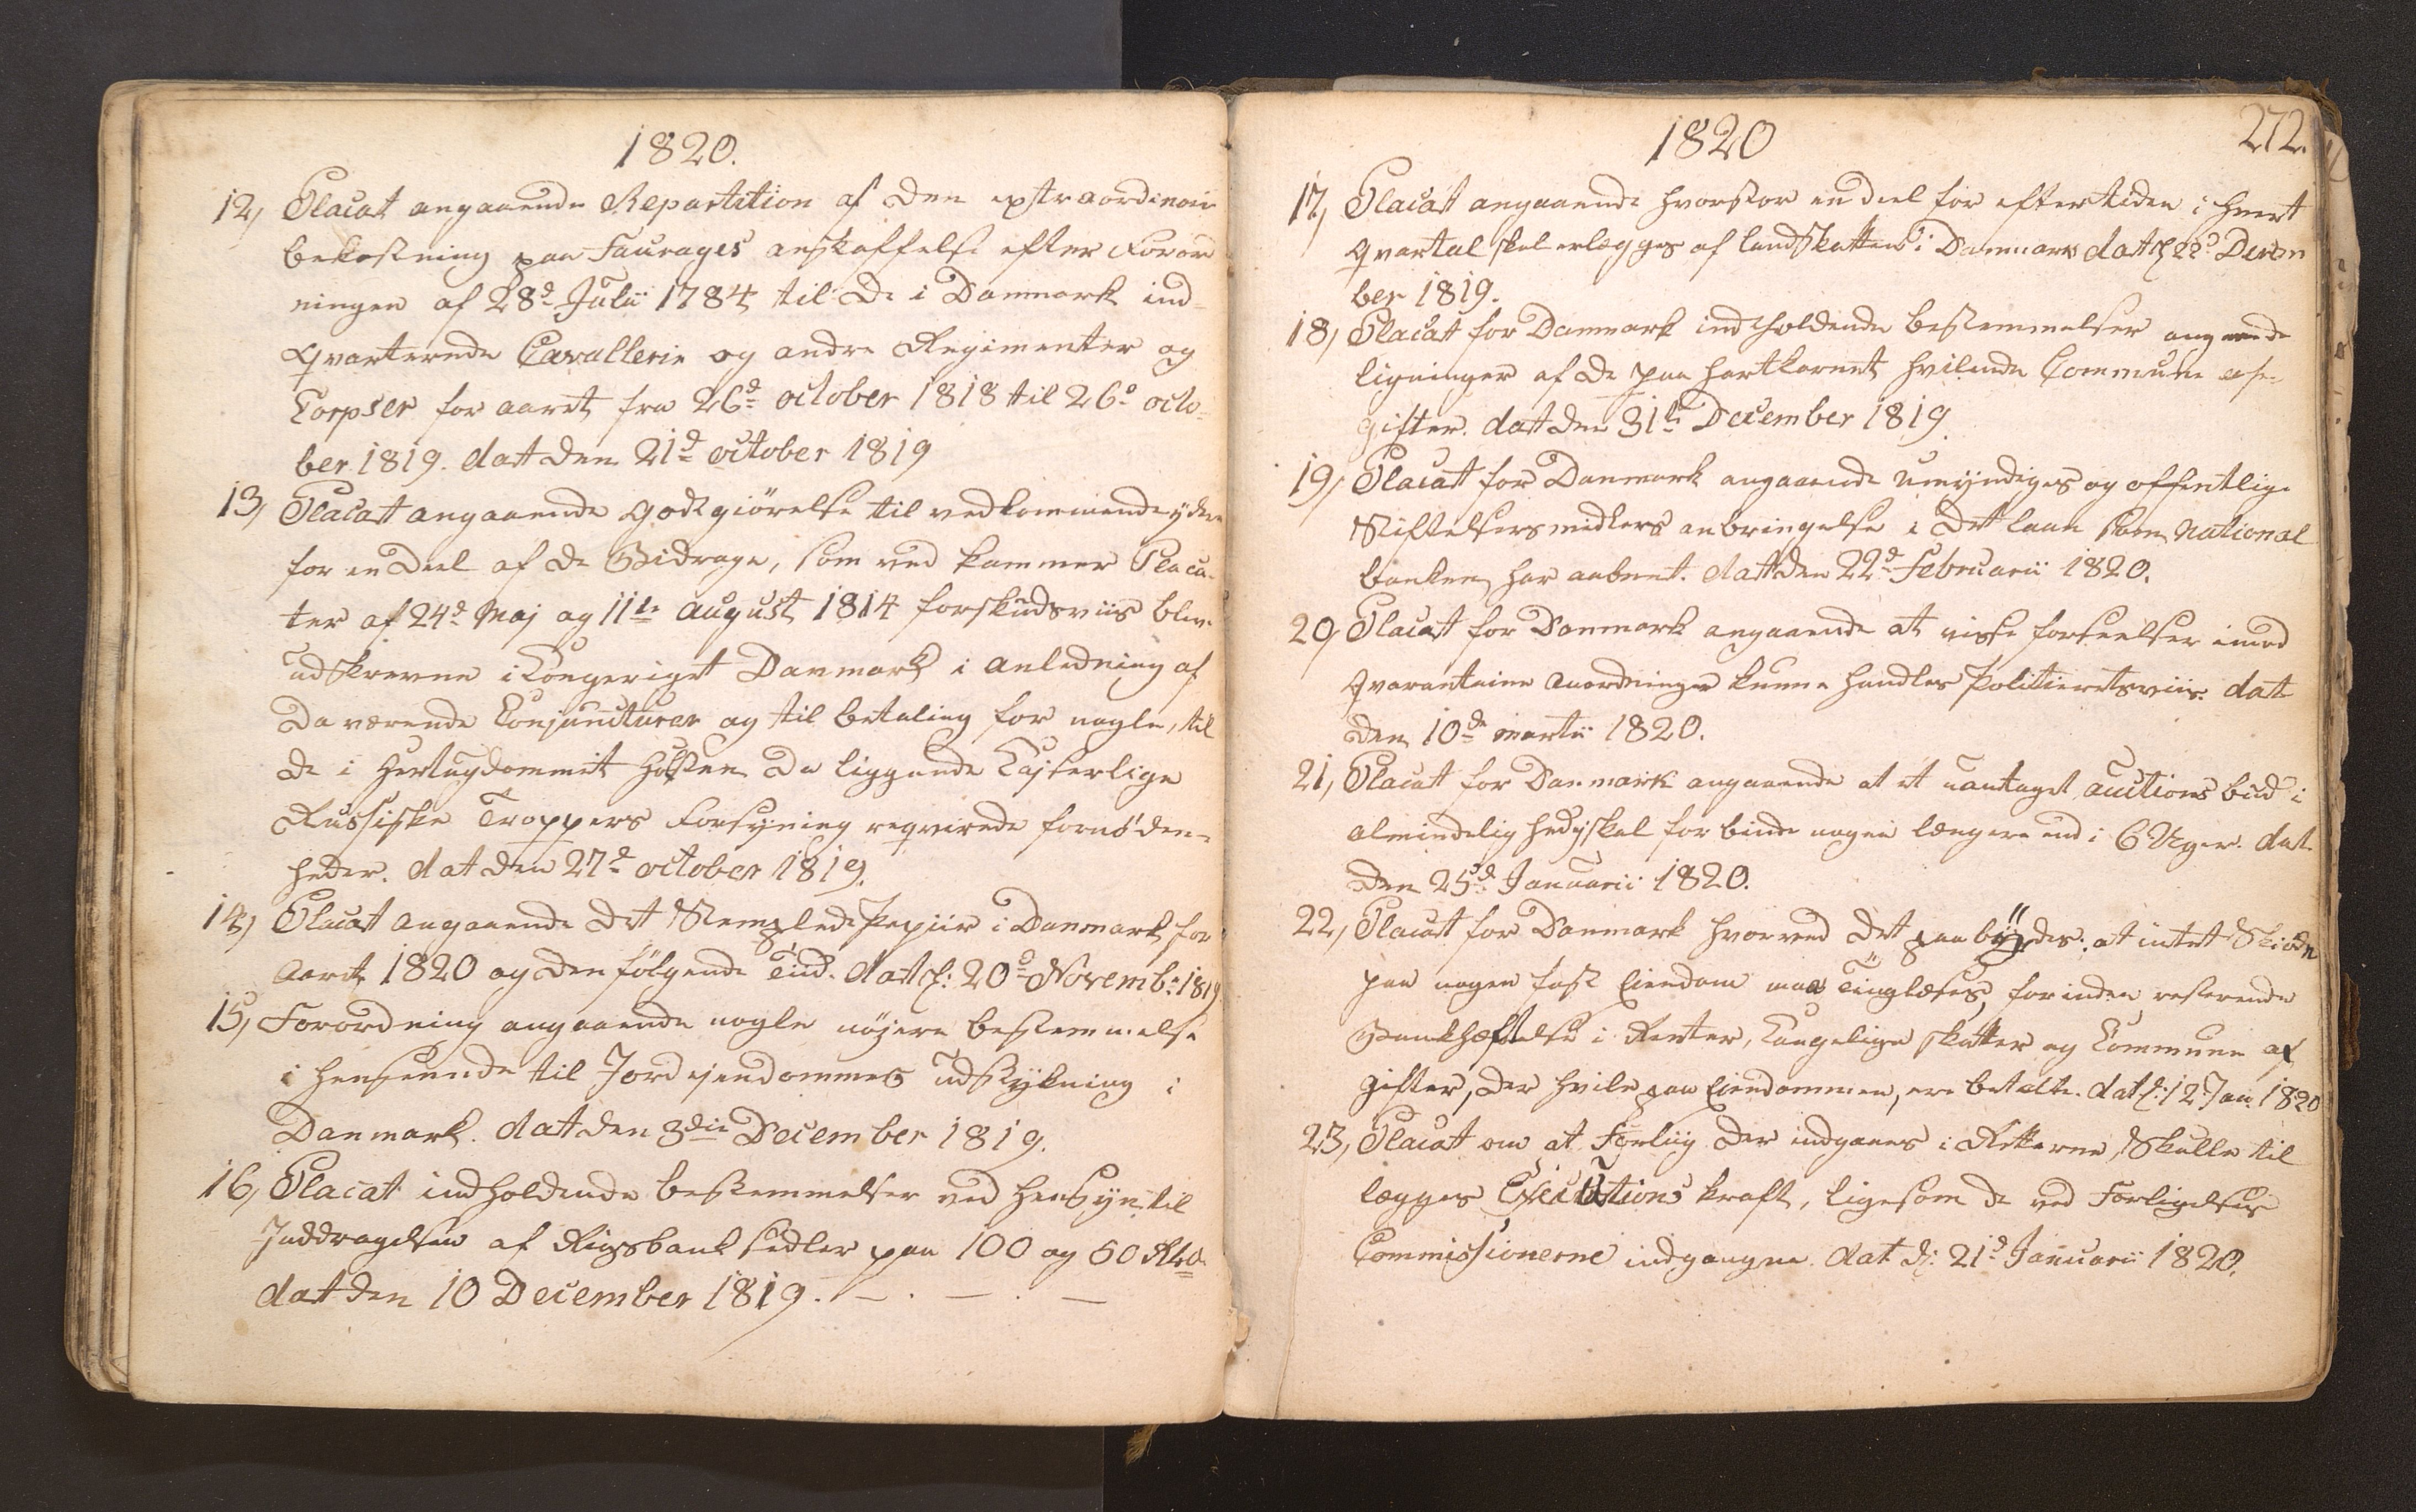 1820.
12, Placat angaaende Repartition af den extraordinair
bekostning paa Faurages anskaffelse efter Foror
ningen af 28d Julii 1784 til de i Danmark ind-
qvarterede Cavallerie og andre Regimenter og
Corpser for aaret fra 26d october 1818 til 26d octo-
ber 1819. dat den 21d october 1819
13, Placat angaaende godtgiörelse til vedkommende ydere
for en Deel af de Bidrage, som ved kammer Placa-
ter af 24d Maj og 11te august 1814 forskudsviis blev
udskrevne i Kongeriget Danmark i anledning af
da værende Conjuncturer og til betaling for nogle, til
de i Hertugdommet Holsten da liggende Kajserlige
Russiske Troppers Forsyning reqvirede fornöden-
heder. dat den 27d october 1819.
14, Placat angaaende det Stemplede Papiir i Danmark for
Aaret 1820 og den fölgende Tiid. dat d: 20d Novemb: 1819
15, Forordning angaaende nogle nöjere bestemmelse
i henseende til Jord ejendommes udstykning i
Danmark. dat den 3die December 1819.
16, Placat indholdende bestemmelser ved hensyn til
Inddragelsen af Rigsbank sedler paa 100 og 50 Rbd
dat den 10 December 1819. — . — . —
1820
272.
17, Placat angaaende hvorstor en deel for eftertiden i hvert
qvartal skal erlægges af landskatten i Danmark dat d 22d Decem
ber 1819.
18, Placat for Danmark indeholdende bestemmelser angaaende
ligninger af de paa hartkornet hvilende Commune af-
gifter. dat den 31te December 1819.
19, Placat for Danmark angaaende umyndiges og offentlige
Stiftelsers midlers anbringelse i det laan som National
banken har aabnet. dat den 22d Februarii 1820.
20, Placat for Danmark angaaende at visse forseelser imod
qvarantaine anordninger kunne handles Politieretsviis. dat
den 10de martii 1820.
21, Placat for Danmark angaaende at et uantaget auctions bud i
almindelighed ej skal forbinde nogen længere end i 6 Uger. dat
den 25d Januarii 1820.
22, Placat for Danmark hvorved det paabÿdes: at intet Skiöde
paa nogen fast Eiendom maa Tinglæses, forinden resterende
Bankhæftelse i Renter, Kongelige skatter og Commune af
gifter, der hvile paa Eiendommen, ere betalte. dat d: 12 Jan. 1820
23, Placat om at Forliig der indgaaes i Retterne, Skulle til
lægges Executions kraft, ligesom de ved Forligelses
Commissionerne indgangne. dat d: 21d Januarii 1820.